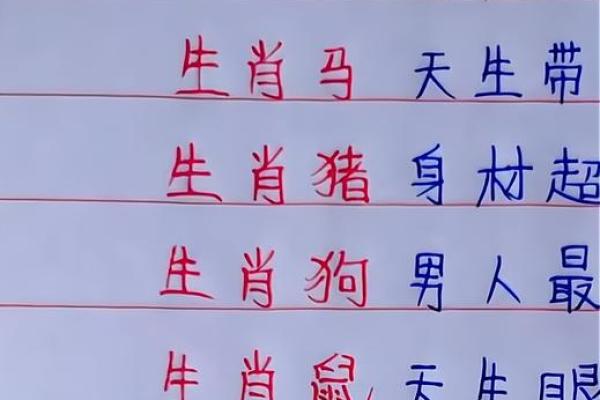 生肖马 天生带
生肖猪 身材超
生肖狗 男人最
生肖鼠 天生眼